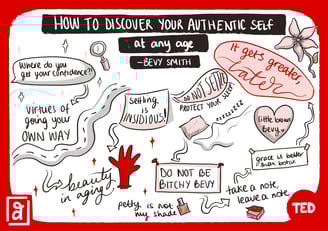 HOW TO DISCOVER YOUR AUTHENTIC SELF
at any age
-BEVY SMITH
Where do you
get your confidence?!
It gets greater,
Later
DO NOT SETTLE
PROTECT YOUR SLEEP
zzzzzzzz
Settling
is
INSIDIOUS!
virtues of
going your
OWN WAY
little brown
Bevy
grace is better
than botox
beauty
in aging
DO NOT BE
BITCHY BEVY
take a note,
leave a note
petty is not
my shade
TED